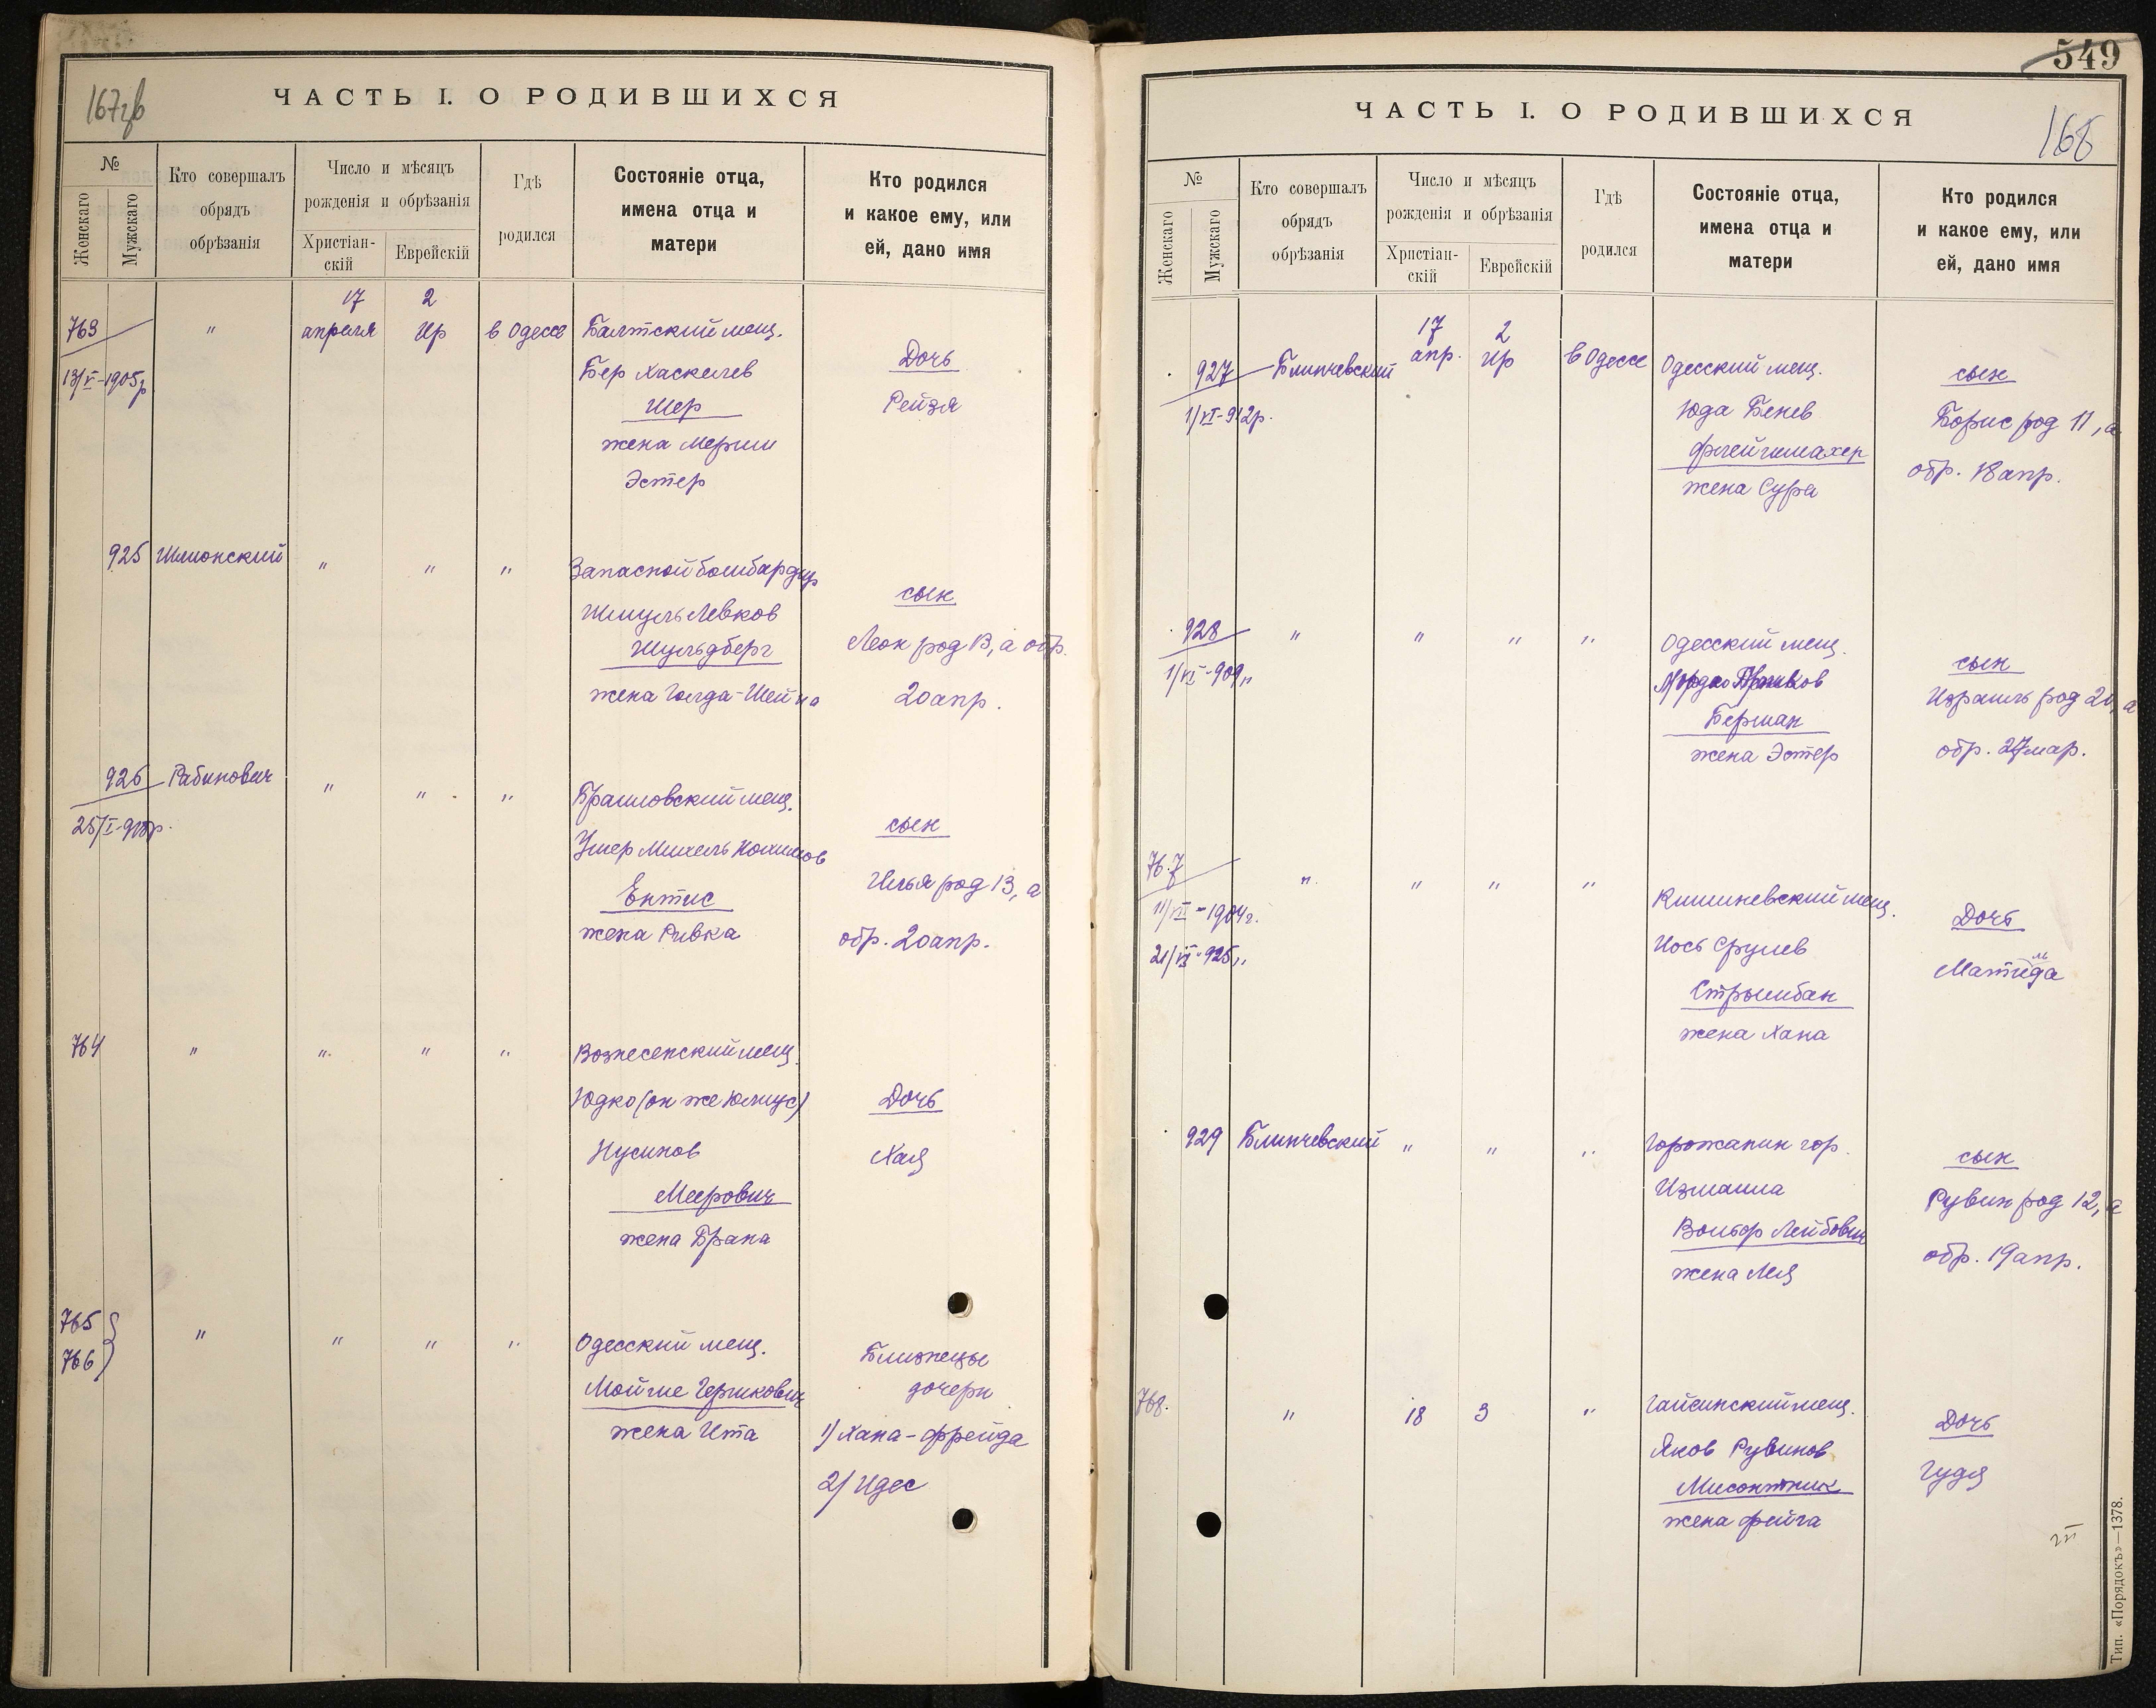 ЧАСТЬ I. О РОДИВШИХСЯ
№
Женскаго
Мужскаго
Кто совершалъ
обрядъ
обрѣзанія
Число и мѣсяцъ
рожденія и обрѣзанія
Христіан-
скій
Еврейскій
Гдѣ
родился
Состояніе отца,
имена отца и
матери
Кто родился
и какое ему, или
ей, дано имя
17 2
763 " апреля Ир в Одессе Балтский мещ.
13/V-1905р
Бер Хаскелев Дочь
Шер Рейзя
жена Мерим
Эстер
925 Шпионский " " " Запасной бомбардир
Шмуль Левков сын
Шульдберг Леон род 13, а обр.
жена Голда-Шейна 20 апр.
926 Рабинович " " " Браиловский мещ.
Ушер Михель Нохимов сын
Ентис Илья род 13, а
жена Ривка обр. 20 апр.
764 " " " " Вознесенский мещ.
Юдко (он же Юлиус) Дочь
Нусинов Хая
Меерович
жена Брана
765
766 " " " " Одесский мещ. Близнецы
Мойше Гершкович дочери
жена Ита 1) Хана-Фрейда
2) Идес
549
ЧАСТЬ I. О РОДИВШИХСЯ
168
№
Женскаго
Мужскаго
Кто совершалъ
обрядъ
обрѣзанія
Число и мѣсяцъ
рожденія и обрѣзанія
Христіан-
скій
Еврейскій
Гдѣ
родился
Состояніе отца,
имена отца и
матери
Кто родился
и какое ему, или
ей, дано имя
17 2
927 Блинчевский апр. Ир в Одессе Одесский мещ. сын
1/XI-912р.
Юда Бенев Борис род 11, а
Флейшмахер обр. 18 апр.
жена Сура
928 " " " " Одесский мещ. сын
1/VI-909"
Бершан Израиль род 20, а
жена Эстер обр. 27 мар.
767 " " " " Кишиневский мещ. Дочь
11/VII-1904г.
21/VI-925"
Иось Срулев Матильда
Стрымбан
жена Хана
929 Блинчевский " " " Горожанин гор. сын
Измаила Рувин род 12, а
Вольф Лейбович обр. 19 апр.
жена Лея
768. " 18 3 " Гайсинский мещ. Дочь
Яков Рувинов Гудя
жена Фейга
Тип. «Порядокъ»—1378.